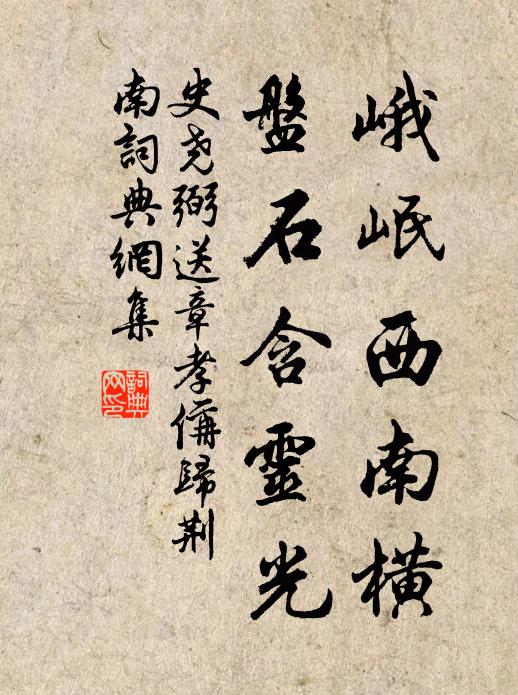 峨岷西南橫
盤石含靈光
史堯弼送章孝倩歸荆
南詞典網集
詞典
网印